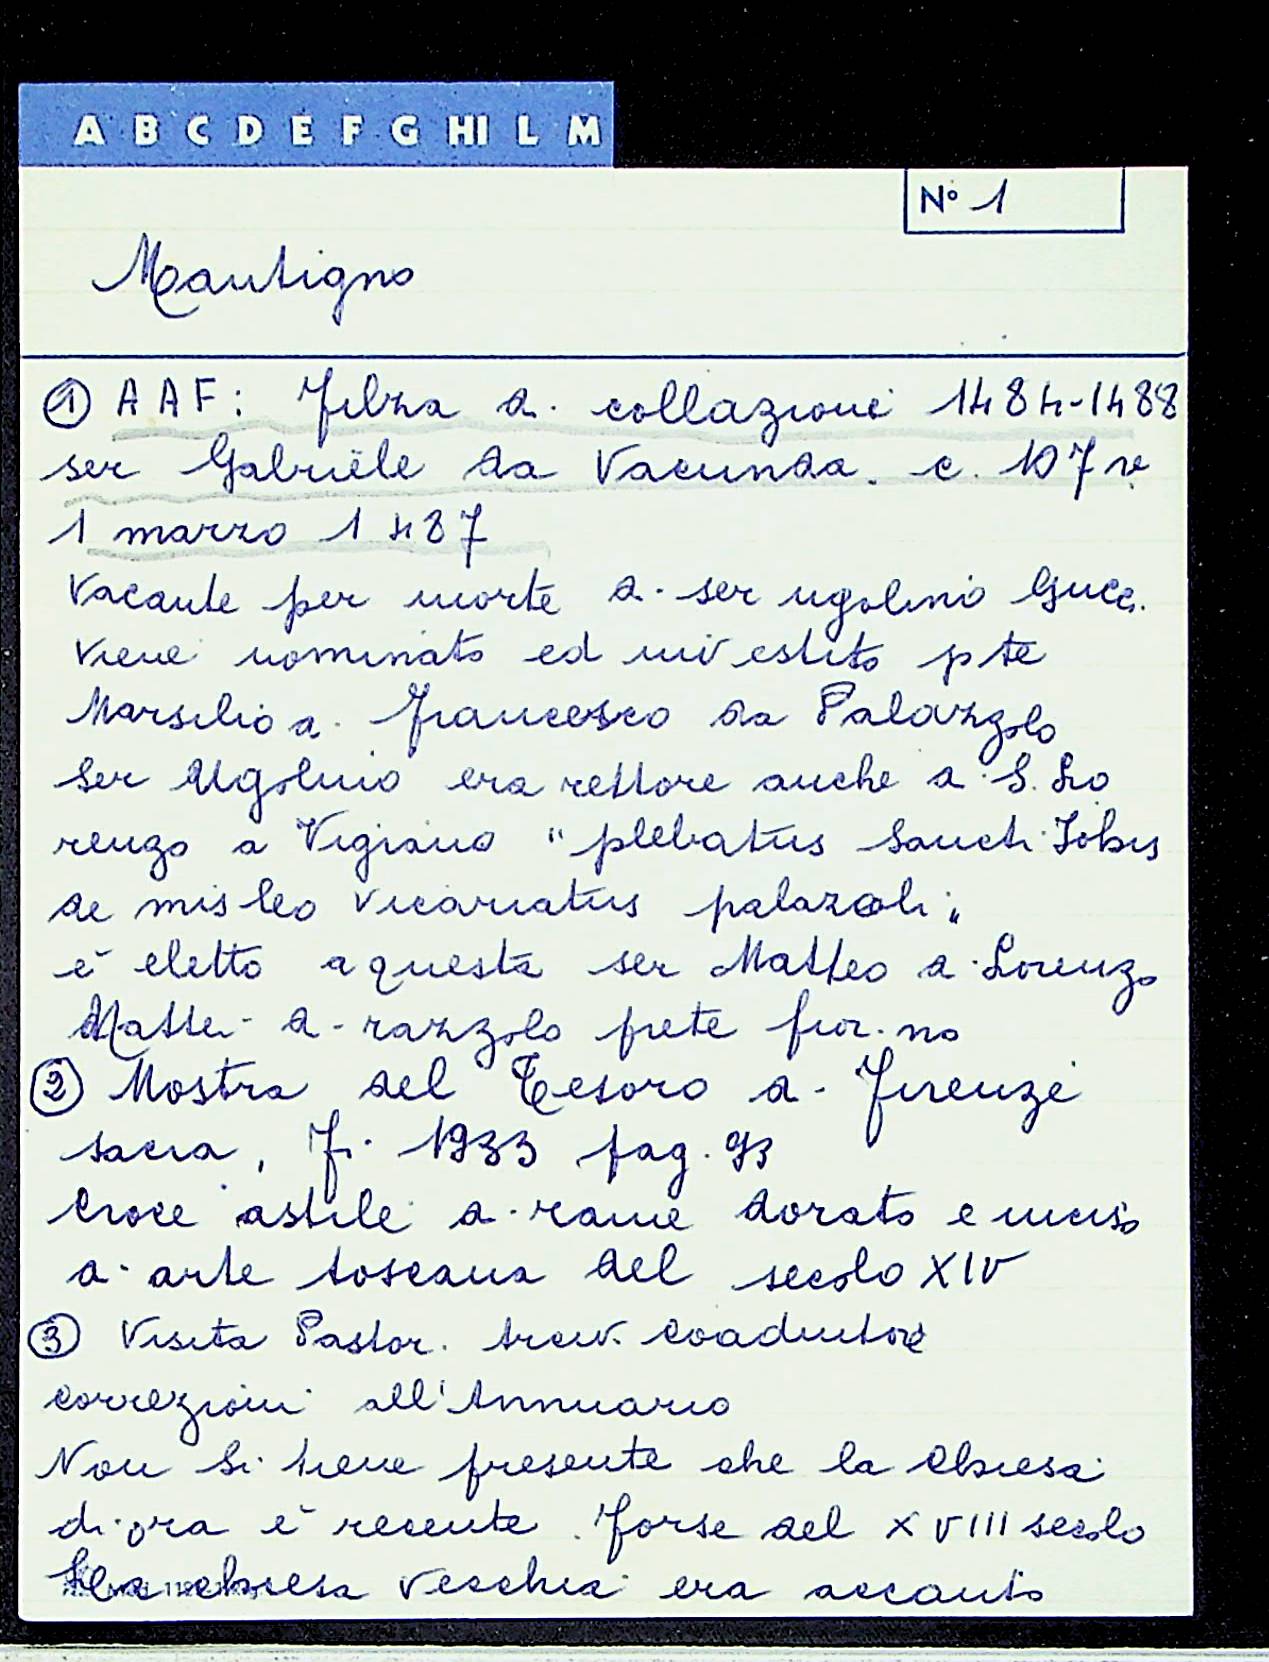 A B C D E F G HI L M
N° 1
Mantigno
① AAF: Filza di collazioni 1484-1488
ser Gabriele da Vacunda. c. 107 v.
1 marzo 1487
Vacante per morte di ser ugolino Gucc.
viene nominato ed investito pte
Marsilio di Francesco da Palazzolo
ser Ugolino era rettore anche di S. Lo
renzo a Vigiano "plebatus Sancti Iohis
de misleo vicariatus palazoli"
è eletto a questa ser Matteo di Lorenzo
Mattei di razzolo prete fior.no
② Mostra del Tesoro di Firenze
sacra, Fi. 1933 pag. 93
Croce astile di rame dorato e inciso
di arte toscana del secolo XIV
③ Visita Pastor. arciv. coadiutore
correzioni all'Annuario
Non si tiene presente che la chiesa
di ora è recente. Forse del XVIII secolo
La chiesa vecchia era accanto